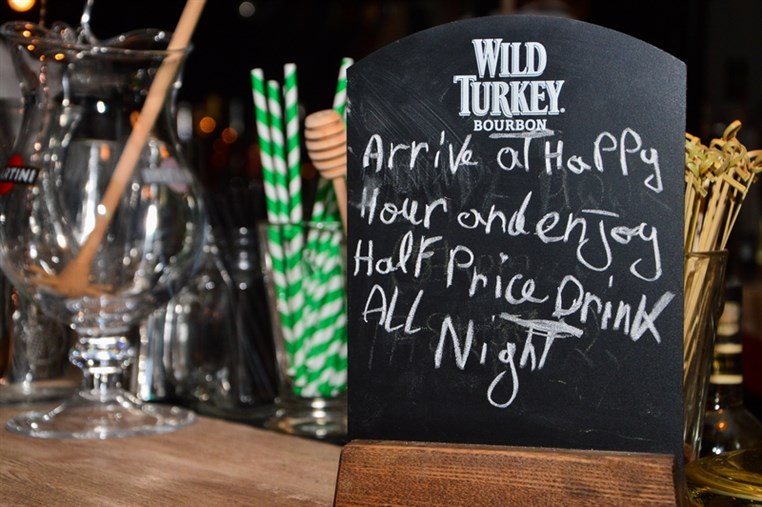 WILD
TURKEY.
BOURBON
Arrive at Happy
Hour and enjoy
Half Price Drink
ALL Night
TINI